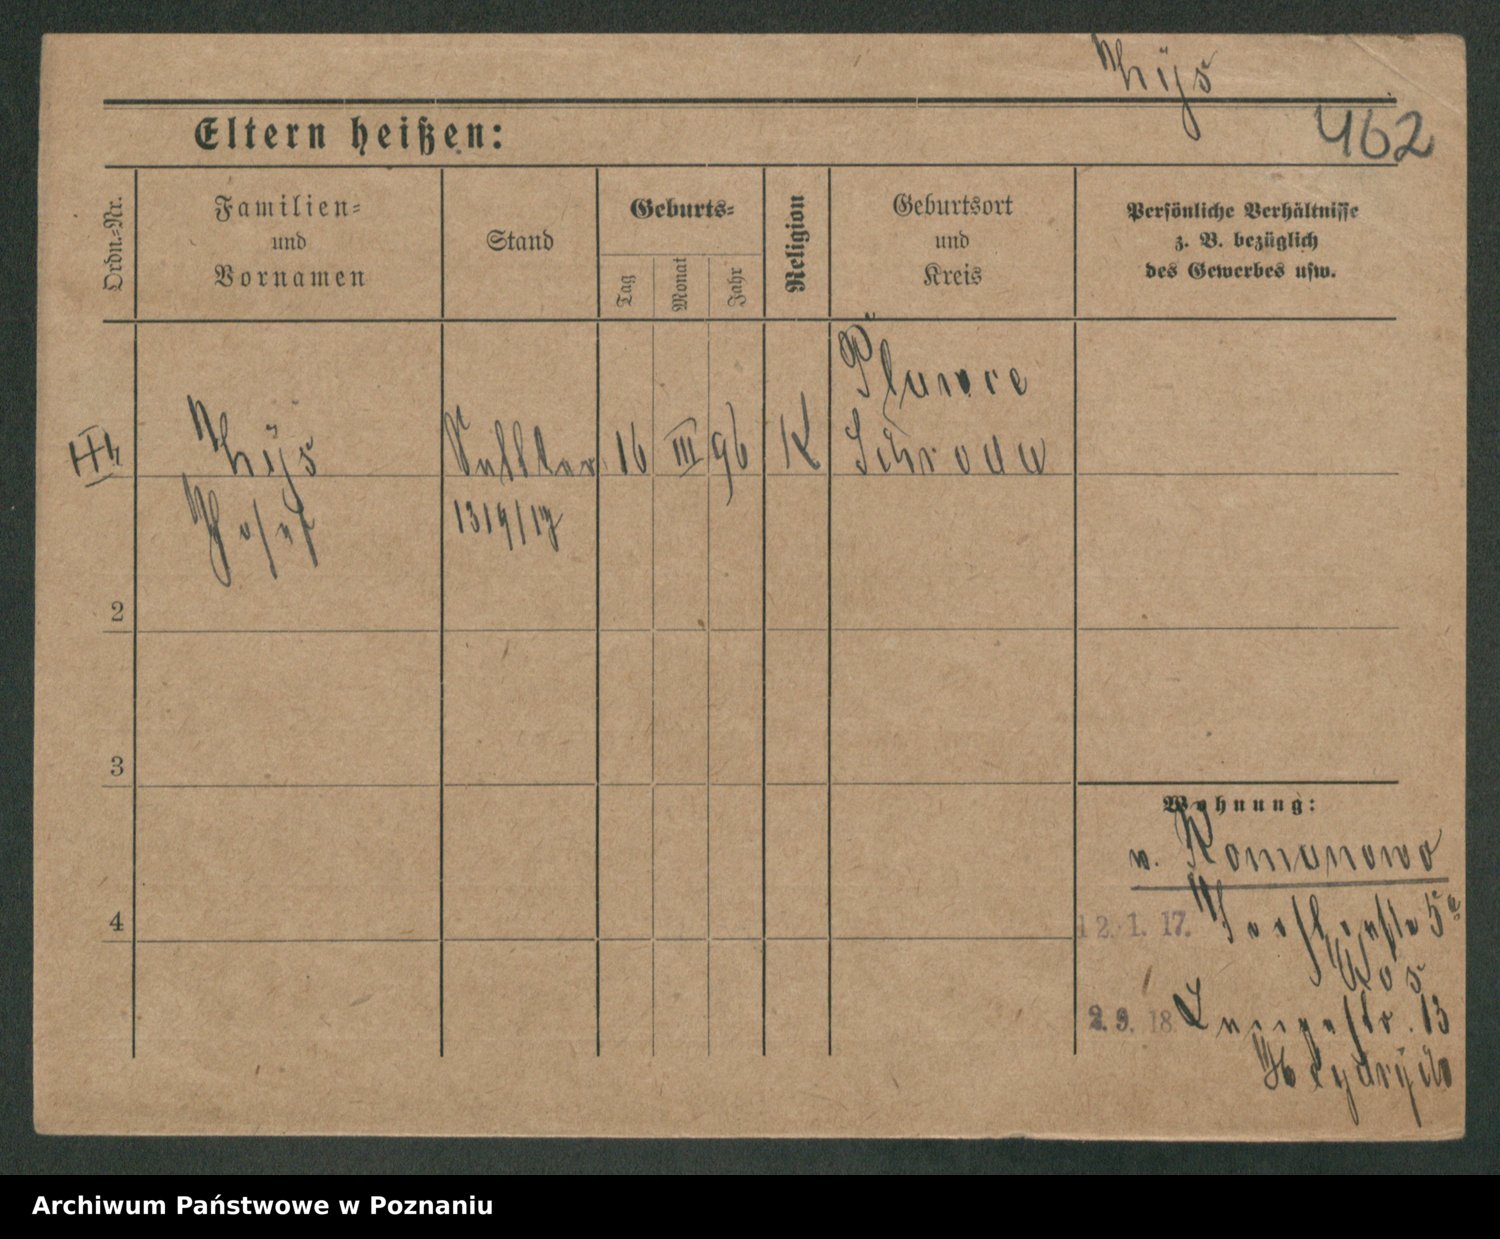 462
Eltern heißen:
Ordn.-Nr.
Familien-
und
Vornamen
Stand
Geburts-
Tag
Monat
Jahr
Religion
Geburtsort
und
Kreis
Persönliche Verhältnisse
z. B. bezüglich
des Gewerbes usw.
Plawce
16 III 96 K Schroda
Josef 1319/17
2
3
Wohnung:
v. Romanowo
4
12. 1. 17.
2. 9. 18. Langestr. 13
Archiwum Państwowe w Poznaniu